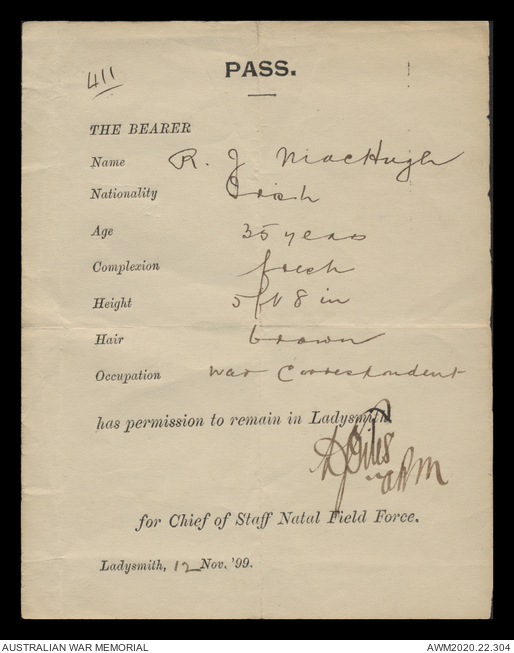 411
PASS.
THE BEARER
Name R. J MacHugh
Nationality Irish
Age 35 years
Complexion fresh
Height 5 ft 8 in
Hair brown
Occupation War Correspondent
has permission to remain in Ladysmith
for Chief of Staff Natal Field Force.
Ladysmith, 12 Nov. '99.
AUSTRALIAN WAR MEMORIAL AWM2020.22.304